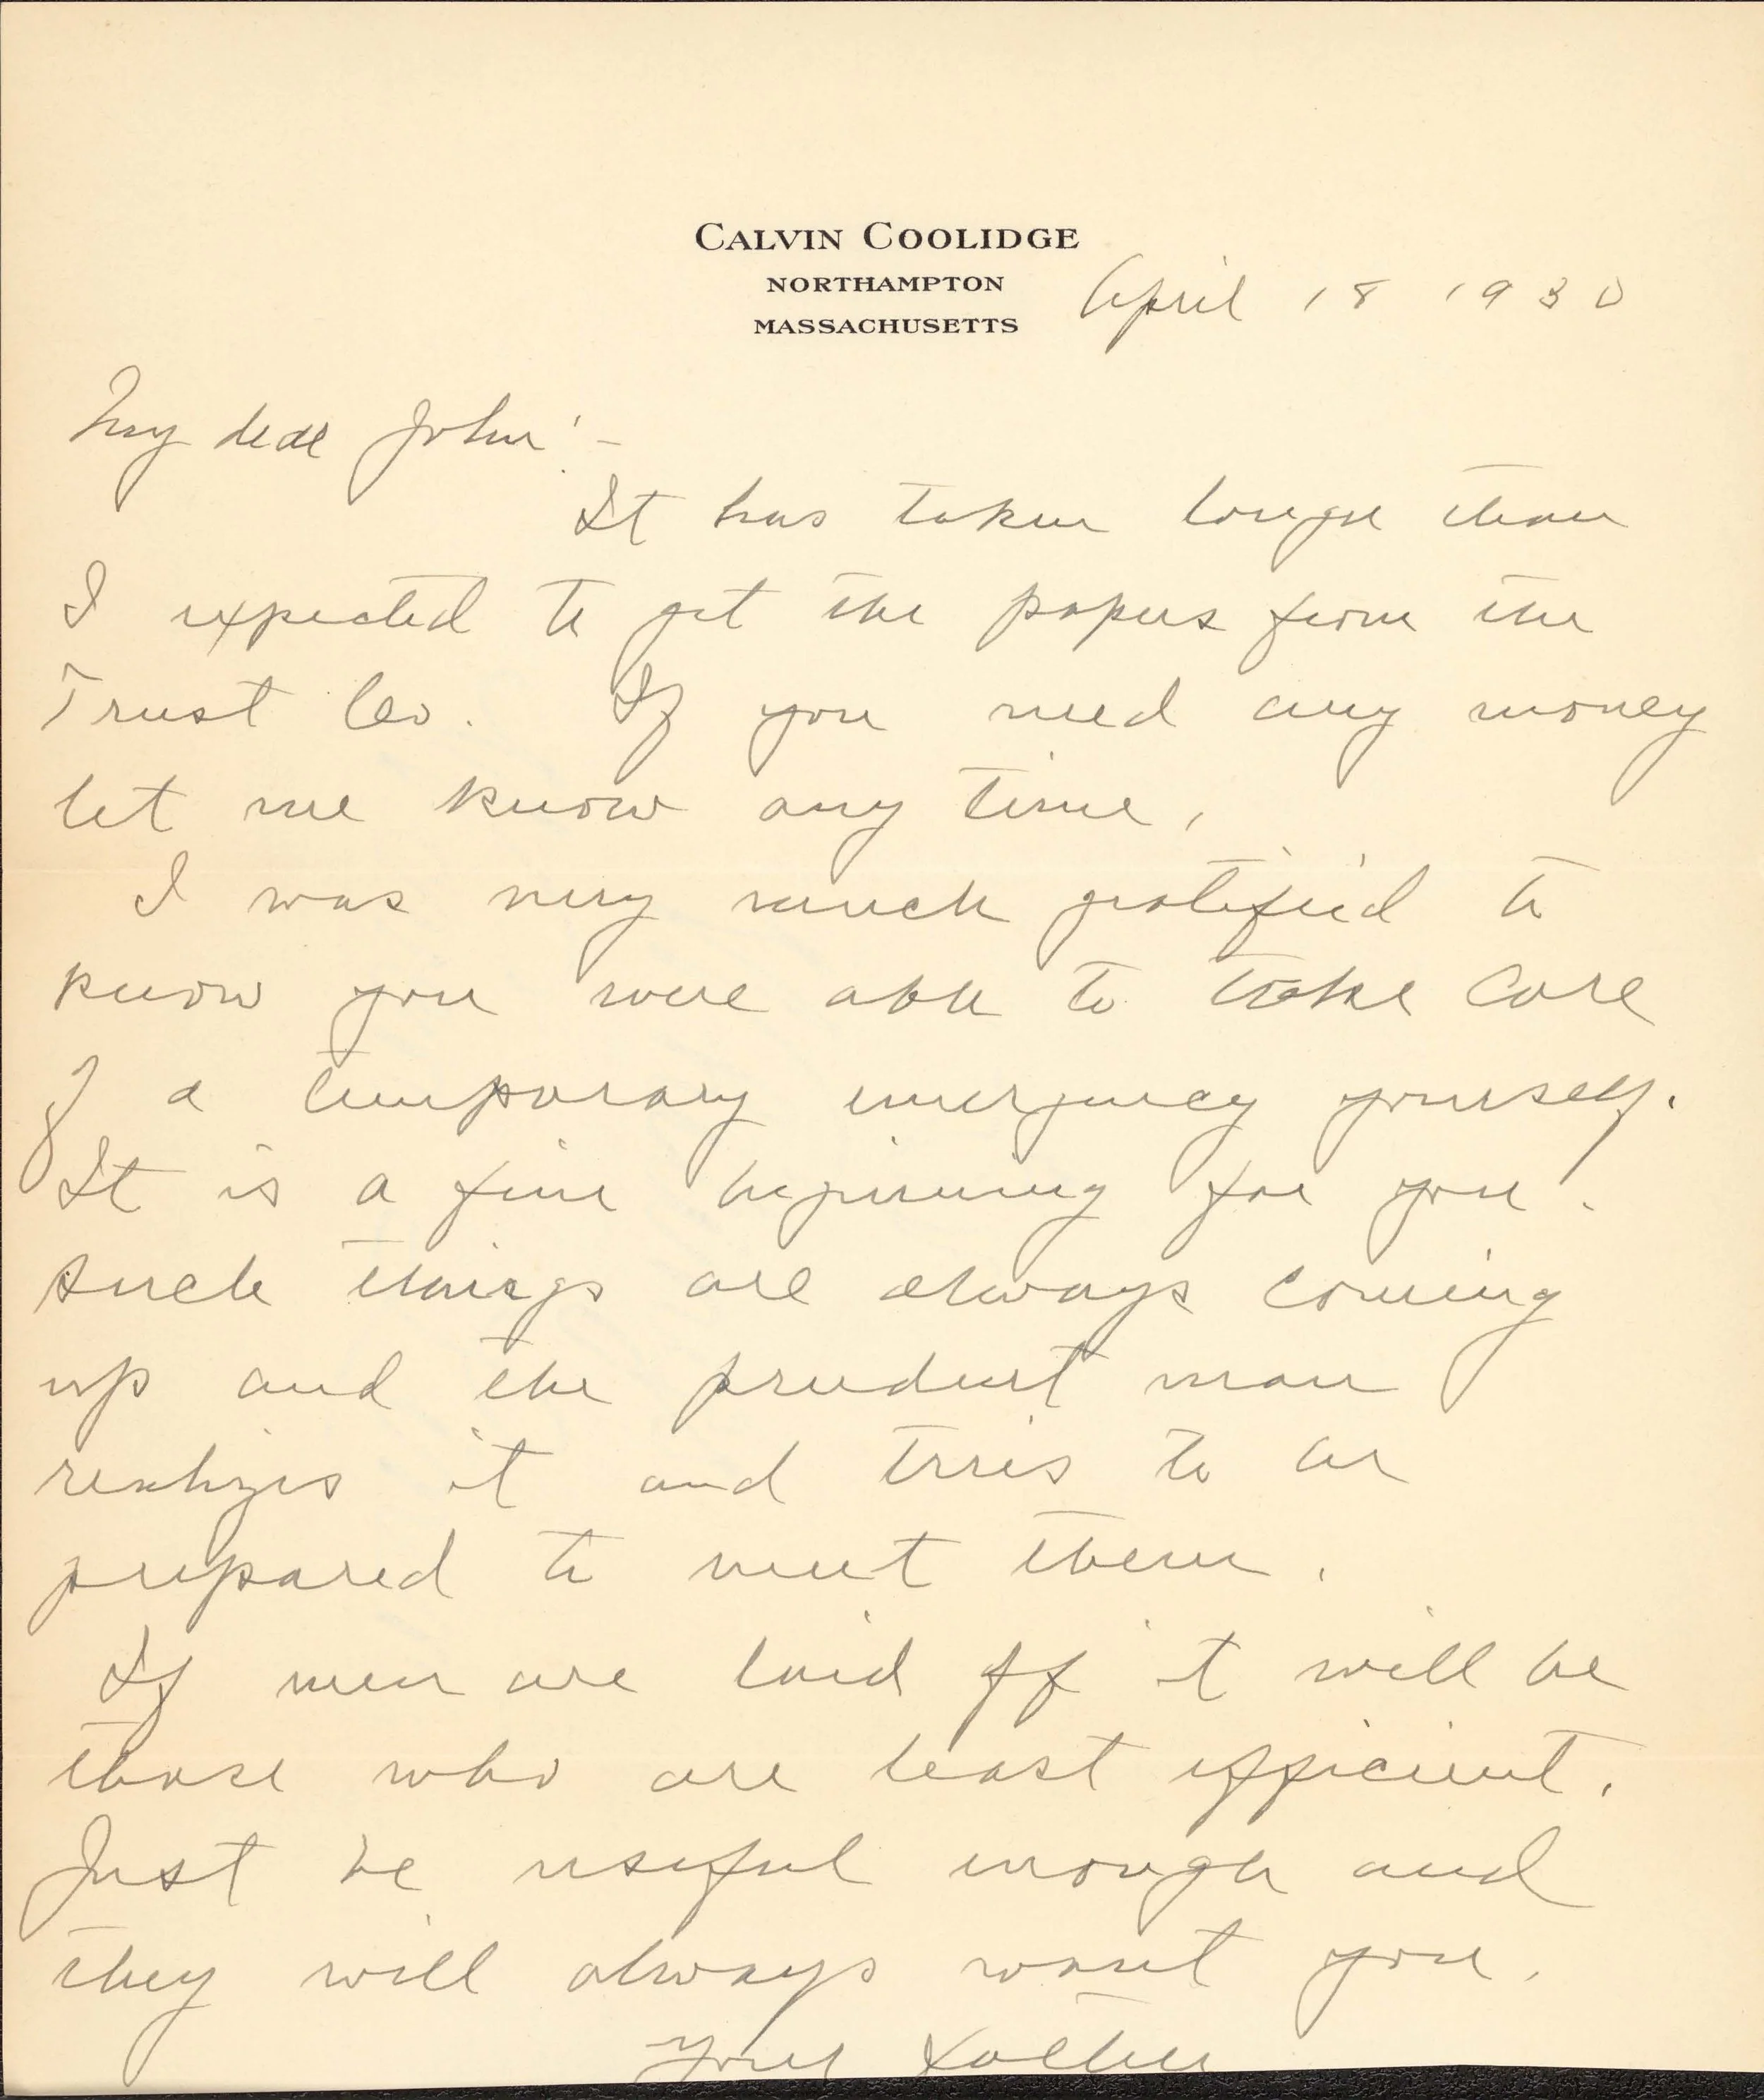 CALVIN COOLIDGE
NORTHAMPTON
MASSACHUSETTS
April 18 1930
My dear John:-
It has taken longer than
I expected to get the papers from the
Trust Co. If you need any money
let me know any time.
I was very much gratified to
know you were able to take care
of a temporary emergency yourself.
It is a fine beginning for you.
Such things are always coming
up and the prudent man
realizes it and tries to be
prepared to meet them.
If men are laid off it will be
those who are least efficient.
Just be useful enough and
they will always want you.
Your Father